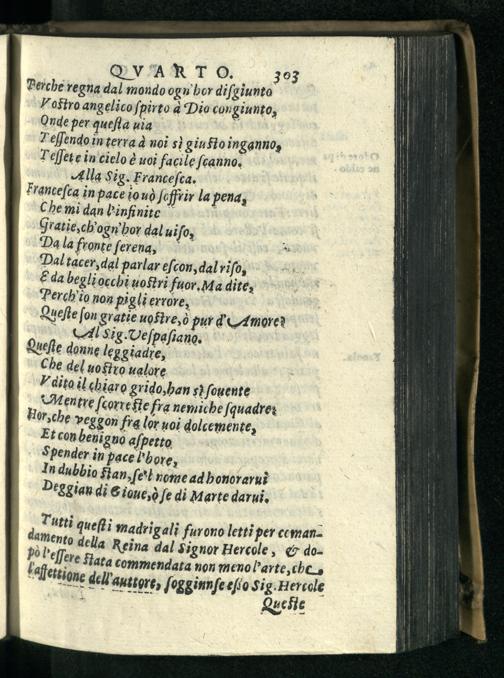 QVARTO. 303
Perche regna dal mondo ogn'hor disgiunto
Vostro angelico spirto à Dio congiunto,
Onde per questa uia
Tessendo in terra à noi sì giusto inganno,
Tessete in cielo è uoi facile scanno.
Alla Sig. Francesca.
Francesca in pace io uò soffrir la pena,
Che mi dan l'infinite
Gratie, ch'ogn'hor dal uiso,
Da la fronte serena,
Dal tacer, dal parlar escon, dal riso,
E da begli occhi uostri fuor. Ma dite,
Perch'io non pigli errore,
Queste son gratie uostre, ò pur d'Amore?
Al Sig. Vespasiano.
Queste donne leggiadre,
Che del uostro ualore
Vdito il chiaro grido, han sì souente
Mentre scorreste fra nemiche squadre;
Hor, che veggon fra lor uoi dolcemente,
Et con benigno aspetto
Spender in pace l'hore,
In dubbio stan, se'l nome ad honorarui
Deggian di Gioue, ò se di Marte darui.
Tutti questi madrigali furono letti per coman-
damento della Reina dal Signor Hercole, & do-
pò l'essere stata commendata non meno l'arte, che
l'affettione dell'auttore, soggiunse esso Sig. Hercole
Queste